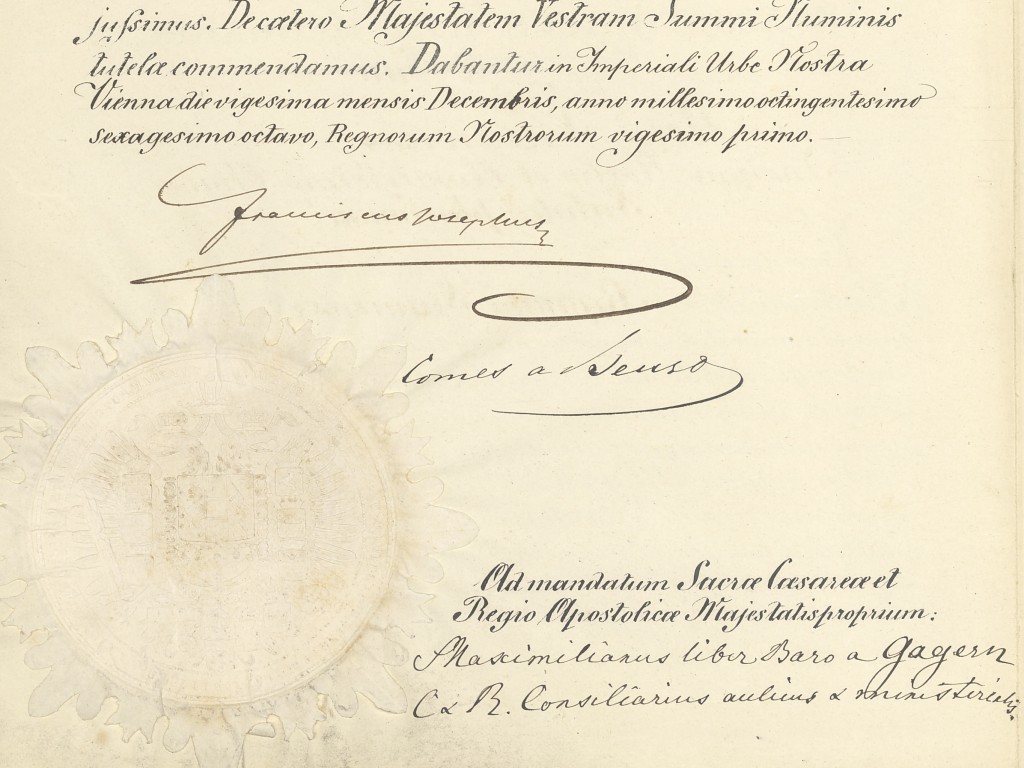 jussimus. De cætero Majestatem Vestram Summi Numinis
tutelæ commendamus. Dabantur in Imperiali Urbe Nostra
Vienna die vigesima mensis Decembris, anno millesimo octingentesimo
sexagesimo octavo, Regnorum Nostrorum vigesimo primo.—
Franciscus Josephus
Comes a Beust
Ad mandatum Sacræ Cæsareæ et
Regio Apostolicæ Majestatis proprium:
Maximilianus liber Baro a Gagern
C & R. Consiliarius aulicus & ministerialis.